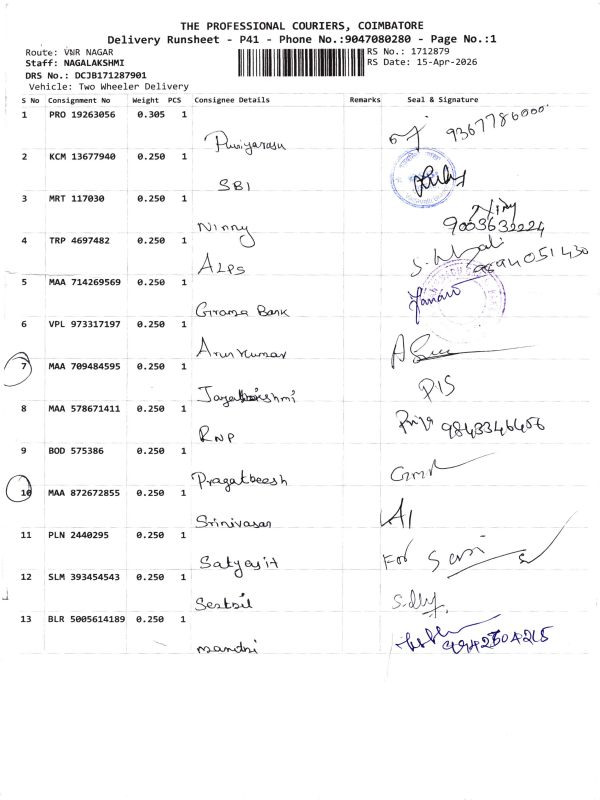 THE PROFESSIONAL COURIERS, COIMBATORE
Delivery Runsheet - P41 - Phone No.:9047080280 - Page No.:1
Route: VNR NAGAR
RS No.: 1712879
Staff: NAGALAKSHMI
RS Date: 15-Apr-2026
DRS No.: DCJB171287901
Vehicle: Two Wheeler Delivery
S No Consignment No Weight PCS Consignee Details Remarks Seal & Signature
1 PRO 19263056 0.305 1
9367786000
2 KCM 13677940 0.250 1
SBI
3 MRT 117030 0.250 1
Ninny
9003632224
4 TRP 4697482 0.250 1
ALPS
5 MAA 714269569 0.250 1
Grama Bank
6 VPL 973317197 0.250 1
Arun Kumar
7 MAA 709484595 0.250 1
8 MAA 578671411 0.250 1
RNP
Priya 9843346456
9 BOD 575386 0.250 1
Pragatheesh
10 MAA 872672855 0.250 1
Srinivasan
11 PLN 2440295 0.250 1
Satyajit
For Sasi
12 SLM 393454543 0.250 1
13 BLR 5005614189 0.250 1
9942504215